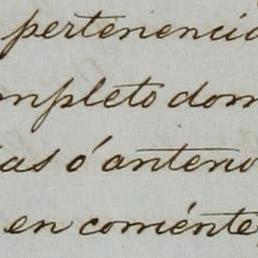 pertenencia
mpleto dom
ias ó anterio
en corriénte,